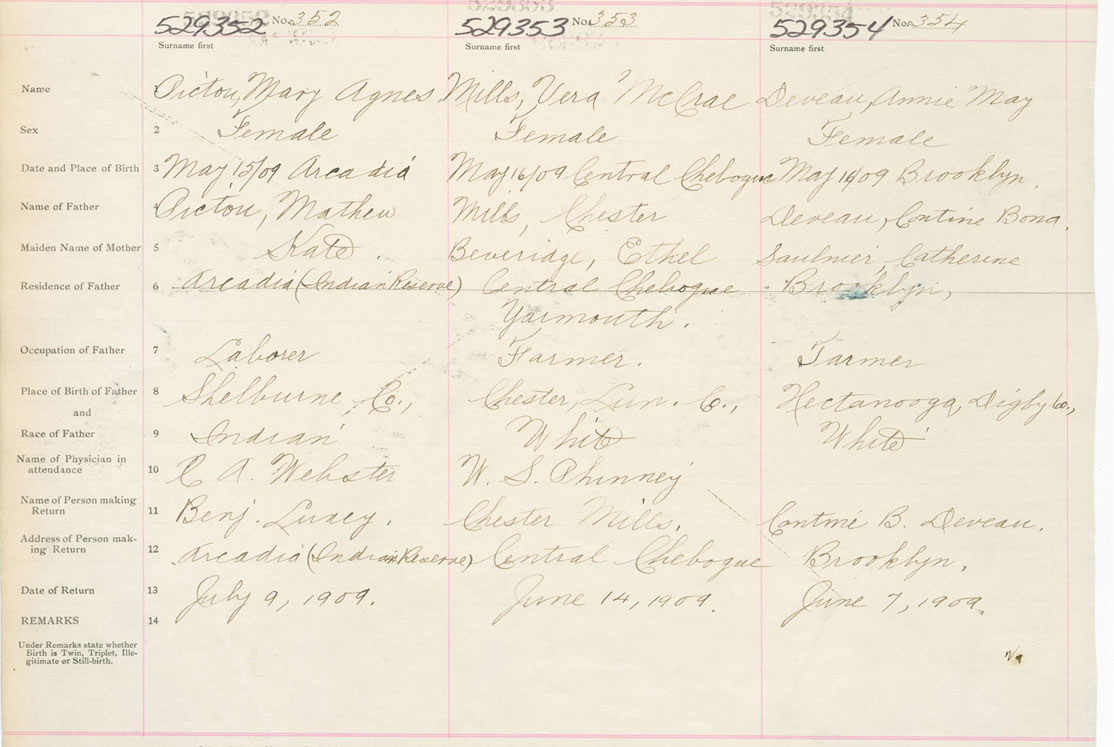 529352 No. 352 529353 No. 353 529354 No. 354
Surname first Surname first Surname first
Name 1 Pictou, Mary Agnes Mills, Vera McCrae Deveau, Annie May
Sex 2 Female Female Female
Date and Place of Birth 3 May 15/09 Arcadia May 16/09 Central Chebogue May 16/09 Brooklyn.
Name of Father 4 Pictou, Mathew Mills, Chester Deveau, Bona.
Maiden Name of Mother 5 Kate. Beveridge, Ethel Saulnier, Catherine
Residence of Father 6 Arcadia (Indian Reserve) Central Chebogue Brooklyn,
Yarmouth.
Occupation of Father 7 Laborer Farmer. Farmer
Place of Birth of Father 8 Shelburne Co., Chester, Lun. Co., Hectanooga, Digby Co.,
and
Race of Father 9 Indian White White
Name of Physician in
attendance 10 C A. Webster W. S. Phinney
Name of Person making
Return 11 Benj. Chester Mills. B. Deveau.
Address of Person mak-
ing Return 12 Arcadia (Indian Reserve) Central Chebogue Brooklyn.
Date of Return 13 July 9, 1909. June 14, 1909. June 7, 1909.
REMARKS 14
Under Remarks state whether
Birth is Twin, Triplet, Ille-
gitimate or Still-birth.